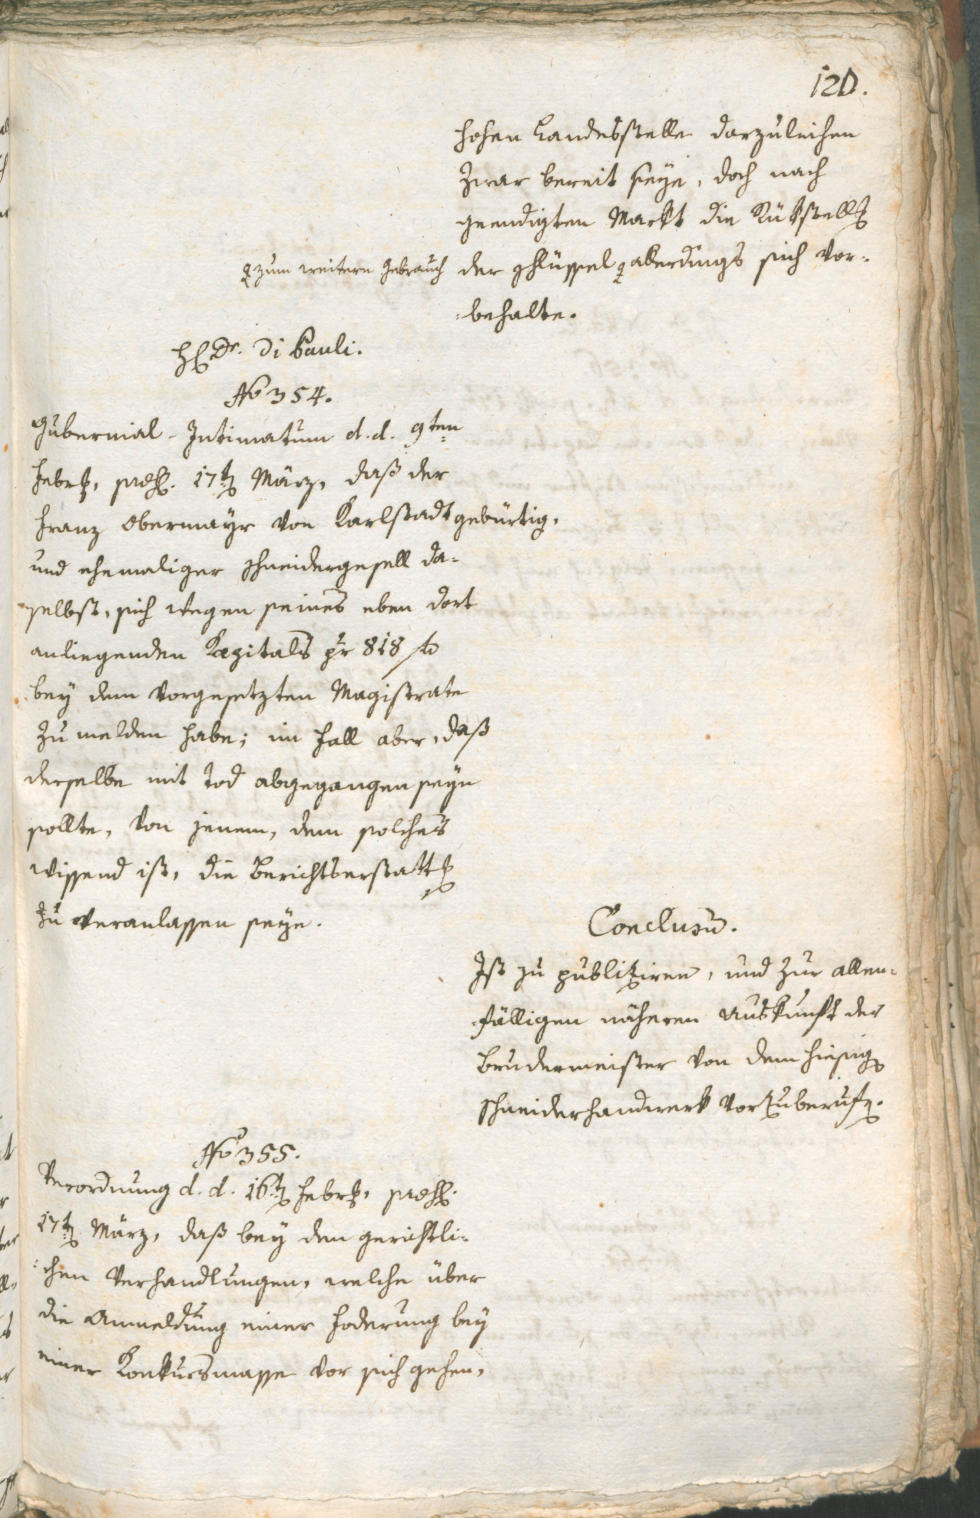 120.
hohen Landesstelle darzuleihen
zwar bereit seye, doch nach
geendigten Markt die Rükstellg
der Schlüssel allerdings sich vor-
behalte.
zum weitern Gebrauch
H. Dr. Di Pauli.
No 354.
Gubernial-Intimatum d. d. 9ten
Febr. præs. 17t März, daß der
Franz Obermayr von Karlstadt gebürtig,
und ehemaliger Schneidergesell da-
selbst, sich wegen seines eben dort
anliegenden Kapitals pr 818 f
bey dem vorgesetzten Magistrate
zu melden habe; im Fall aber, daß
derselbe mit Tod abgegangen seyn
sollte, von jenem, dem solches
wissend ist, die Berichtserstattg
zu veranlassen seye.
Conclusũ.
Ist zu publiziren, und zur allen-
fälligen näheren Auskunft der
Brudermeister von dem hiesig
Schneiderhandwerk vorzuberufen.
No 355.
Verordnung d. d. 16t Febr. præs.
17t März, daß bey den gerichtli-
chen Verhandlungen, welche über
die Anmeldung einer Foderung bey
einer Konkursmasse vor sich gehen,